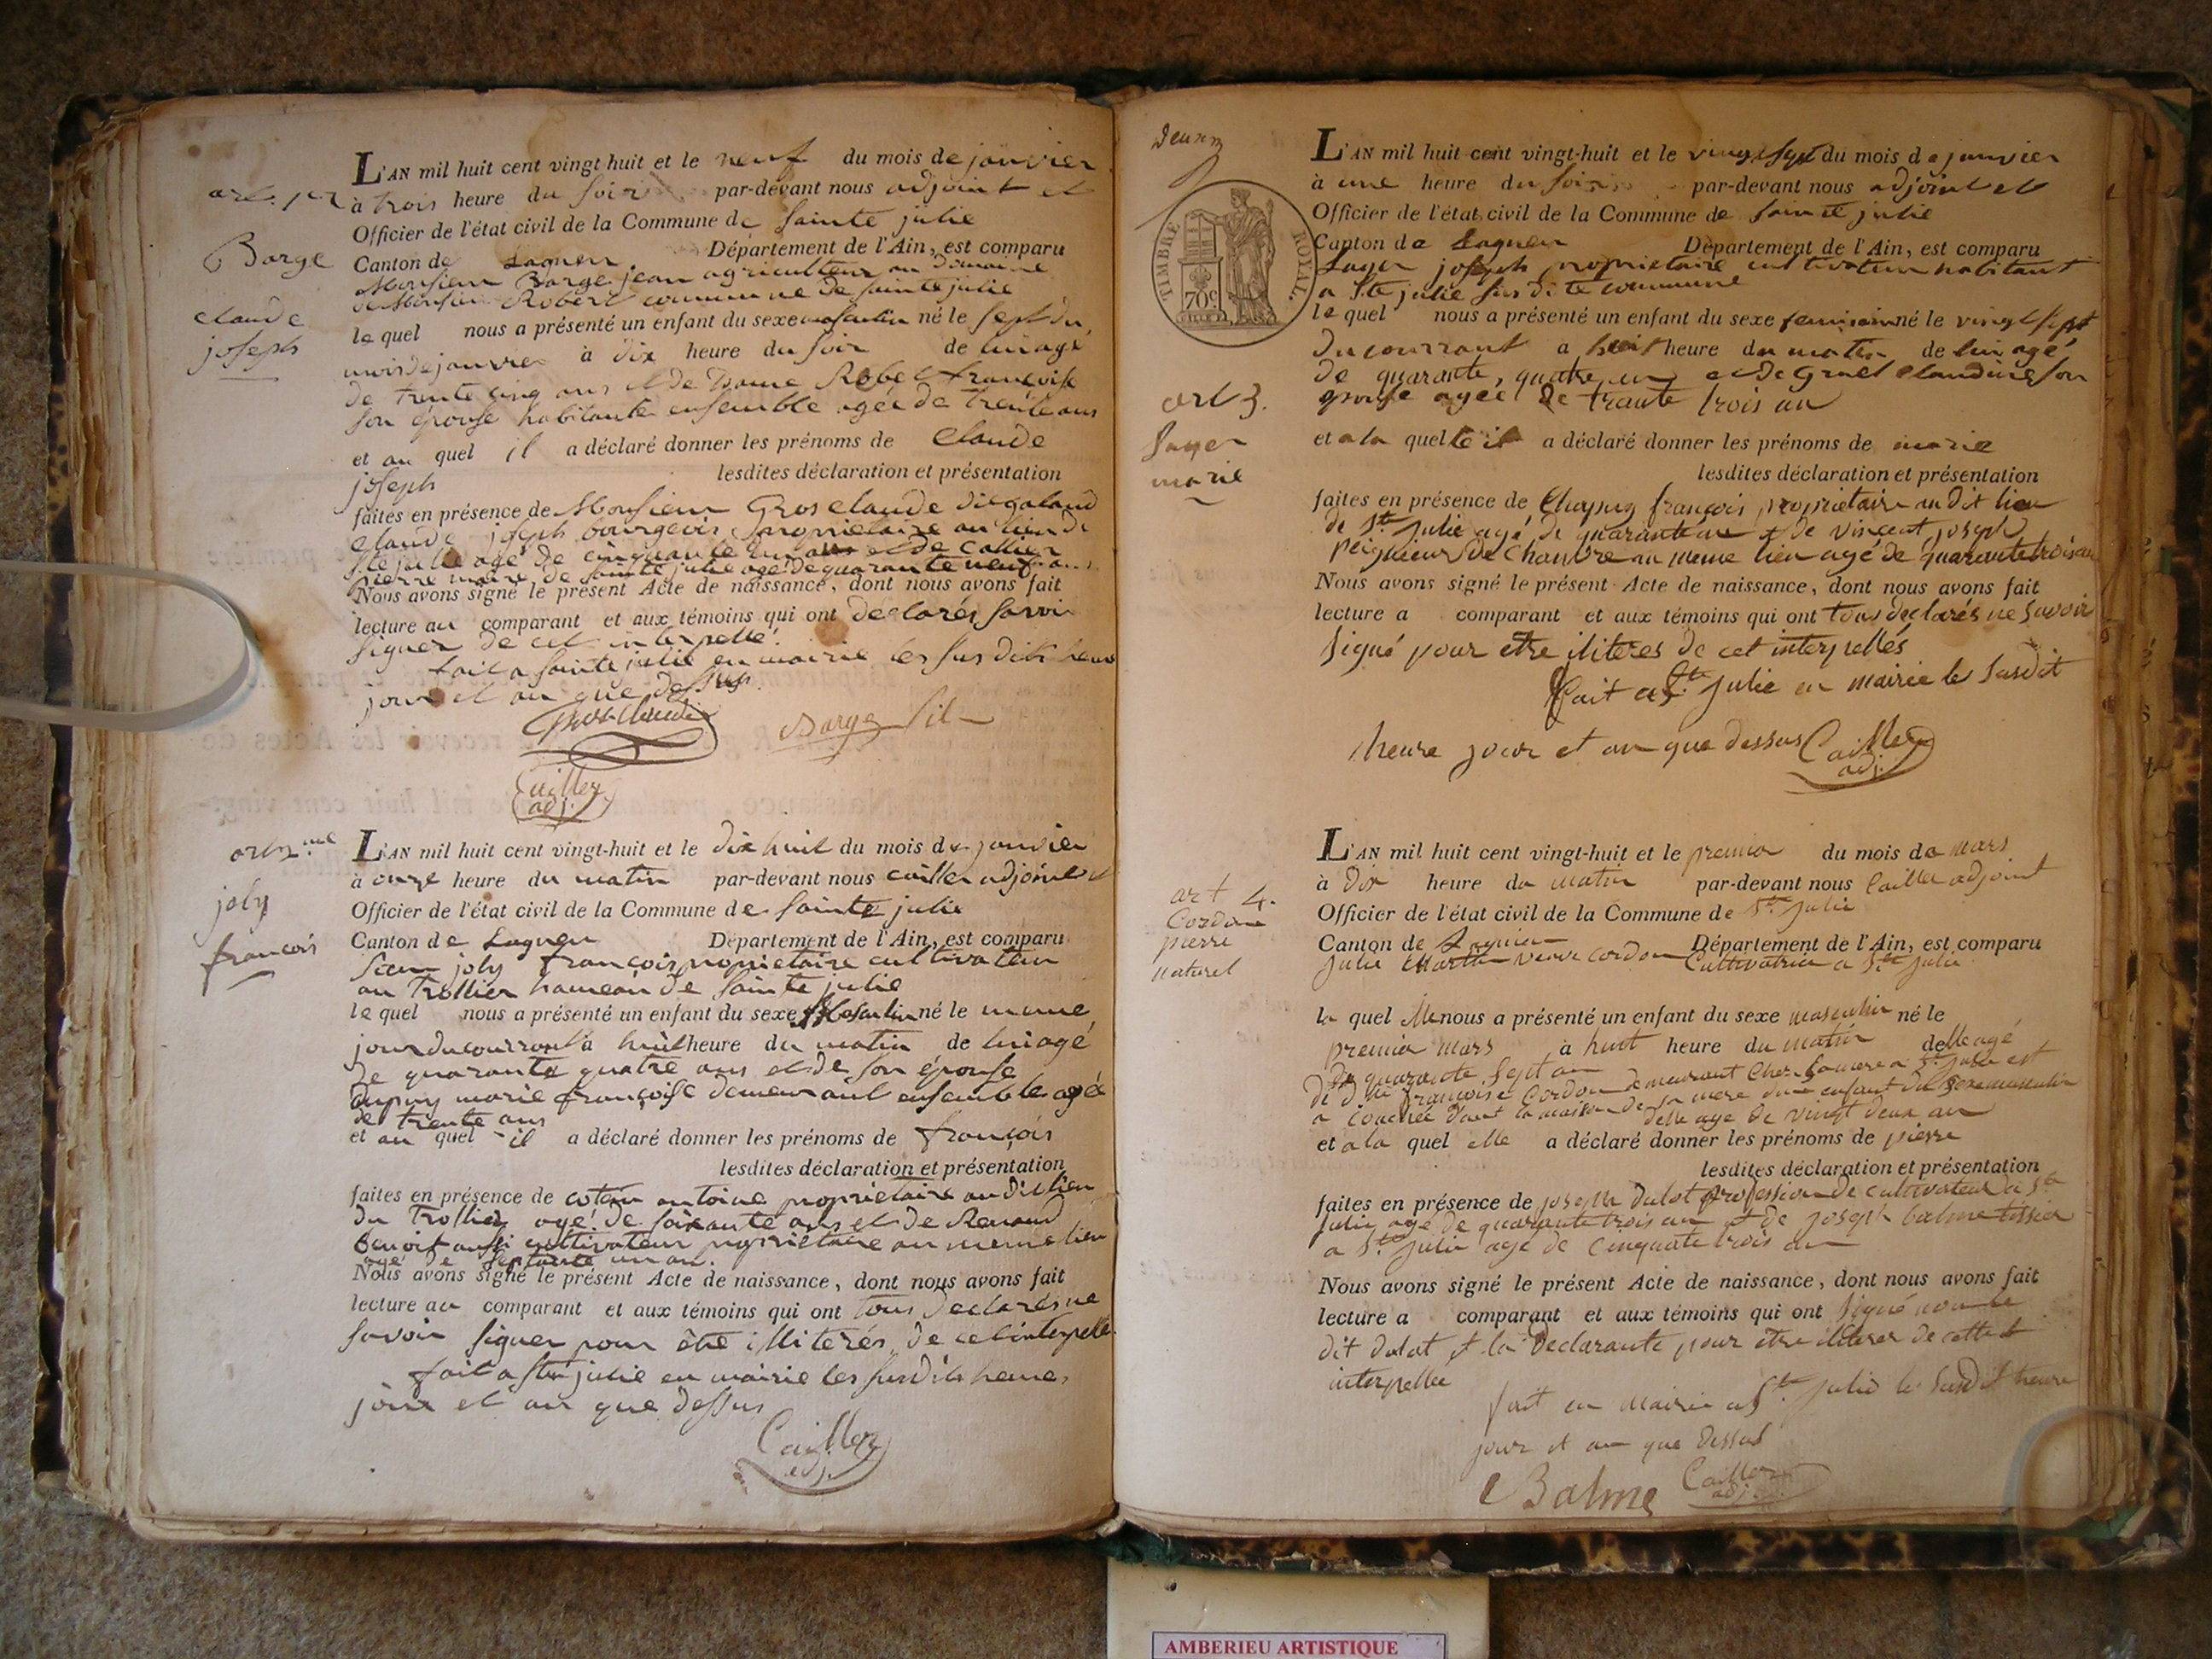 art. 1er
Barge
claude
joseph
L'AN mil huit cent vingt-huit et le neuf du mois de janvier
à trois heure du soir par-devant nous adjoint et
Officier de l'état civil de la Commune de Sainte julie
Canton de Lagneu Département de l'Ain, est comparu
Monsieur Barge jean agriculteur au Domaine
de Monsieur Robert commune de Sainte julie
le quel nous a présenté un enfant du sexe masculin né le sept du
mois de janvier à dix heure du soir de lui agé
de trente cinq ans et de Dame Robet francoise
son épouse habitante ensemble agée de trente ans
et au quel il a déclaré donner les prénoms de Claude
joseph lesdites déclaration et présentation
faites en présence de Monsieur Gros claude dit galand
claude joseph bourgeois propriétaire au lieu de
Ste julie agé de cinquante et de Cailler
pierre maire de Sainte julie agé de quarante neuf
Nous avons signé le présent Acte de naissance, dont nous avons fait
lecture au comparant et aux témoins qui ont déclarés savoir
signer de cet interpellé
fait a Sainte julie en mairie les susdits heure
jour et an que dessus
Gros Claude Barge
Cailler
adj.
art 2.me
joly
francois
L'AN mil huit cent vingt-huit et le dix huit du mois de janvier
à onze heure du matin par-devant nous cailler adjoint et
Officier de l'état civil de la Commune de Sainte julie
Canton de Lagneu Département de l'Ain, est comparu
joly francois propriétaire cultivateur
au Trollier hameau de Sainte julie
le quel nous a présenté un enfant du sexe Masculin né le meme
jour du courrant à huit heure du matin de lui agé
de quarante quatre ans et de son épouse
dupuy marie francoise demeurant ensemble agée
de trente ans
et au quel il a déclaré donner les prénoms de francois
lesdites déclaration et présentation
faites en présence de cotain antoine propriétaire au dit lieu
du Trollier agé de soixante ans et de Renaud
benoit aussi cultivateur propriétaire au meme lieu
agé de septante un an.
Nous avons signé le présent Acte de naissance, dont nous avons fait
lecture au comparant et aux témoins qui ont tous declarés ne
savoir signer pour être illiterés de cet interpellé
fait a Ste julie en mairie les susdits heure,
jour et an que dessus
Cailler
adj.
deux
TIMBRE ROYAL.
70c
art 3.
Sayer
marie
L'AN mil huit cent vingt-huit et le vingt sept du mois de janvier
à une heure du soir par-devant nous adjoint et
Officier de l'état civil de la Commune de Sainte julie
Canton de Lagneu Département de l'Ain, est comparu
Sayer joseph propriétaire cultivateur habitant
a Ste julie sus dite commune
le quel nous a présenté un enfant du sexe feminin né le vingt sept
du courrant a huit heure du matin de lui agé
de quarante, quatre an et de Gruel Claudine son
epouse agée de trante trois an
et a la quelle il a déclaré donner les prénoms de marie
lesdites déclaration et présentation
faites en présence de Chapuy françois propriétaire au dit lieu
de Ste Julie agé de quarante et de vincent joseph
peigneur de Chanvre au meme lieu agé de quarante trois an
Nous avons signé le présent Acte de naissance, dont nous avons fait
lecture a comparant et aux témoins qui ont tous declarés ne savoir
signé pour etre iliteres de cet interpellés
fait a Ste Julie en mairie le susdit
heure jour et an que dessus Cailler
adj.
art 4.
Cordon
pierre
naturel
L'AN mil huit cent vingt-huit et le premier du mois de mars
à dix heure du matin par-devant nous Cailler adjoint
Officier de l'état civil de la Commune de Ste Julie
Canton de Lagnieu Département de l'Ain, est comparu
Julie Martin veuve cordon Cultivatrice a Ste Julie
la quel elle nous a présenté un enfant du sexe masculin né le
premier mars à huit heure du matin delle agé
de quarante sept an
de dlle françoise Cordon demeurant Chez sa mere a Ste Julie est
a couchée dant la maison de sa mere d'un enfant du sexe masculin
delle age de vingt deux an
et a la quel elle a déclaré donner les prénoms de pierre
lesdites déclaration et présentation
faites en présence de joseph dulot profession de cultivateur a Ste
Julie agé de quarante trois an et de joseph balme tissier
a Ste Julie agé de cinquante trois an
Nous avons signé le présent Acte de naissance, dont nous avons fait
lecture a comparant et aux témoins qui ont signé non le
dit dulot et la Declarante pour etre iliterer de cette
interpellee
fait en mairie a Ste Julie le susdit heure
jour et an que dessus
Balme Cailler
adj.
AMBERIEU ARTISTIQUE